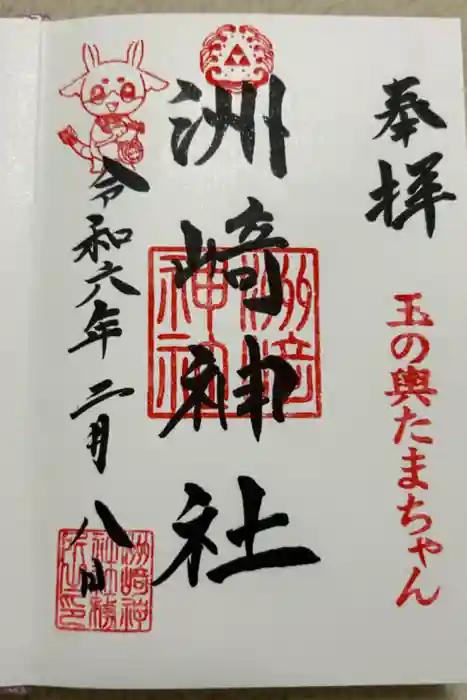 奉拝
玉の輿たまちゃん
洲崎神社
洲崎神社
令和六年二月八日
洲崎神社務所之印